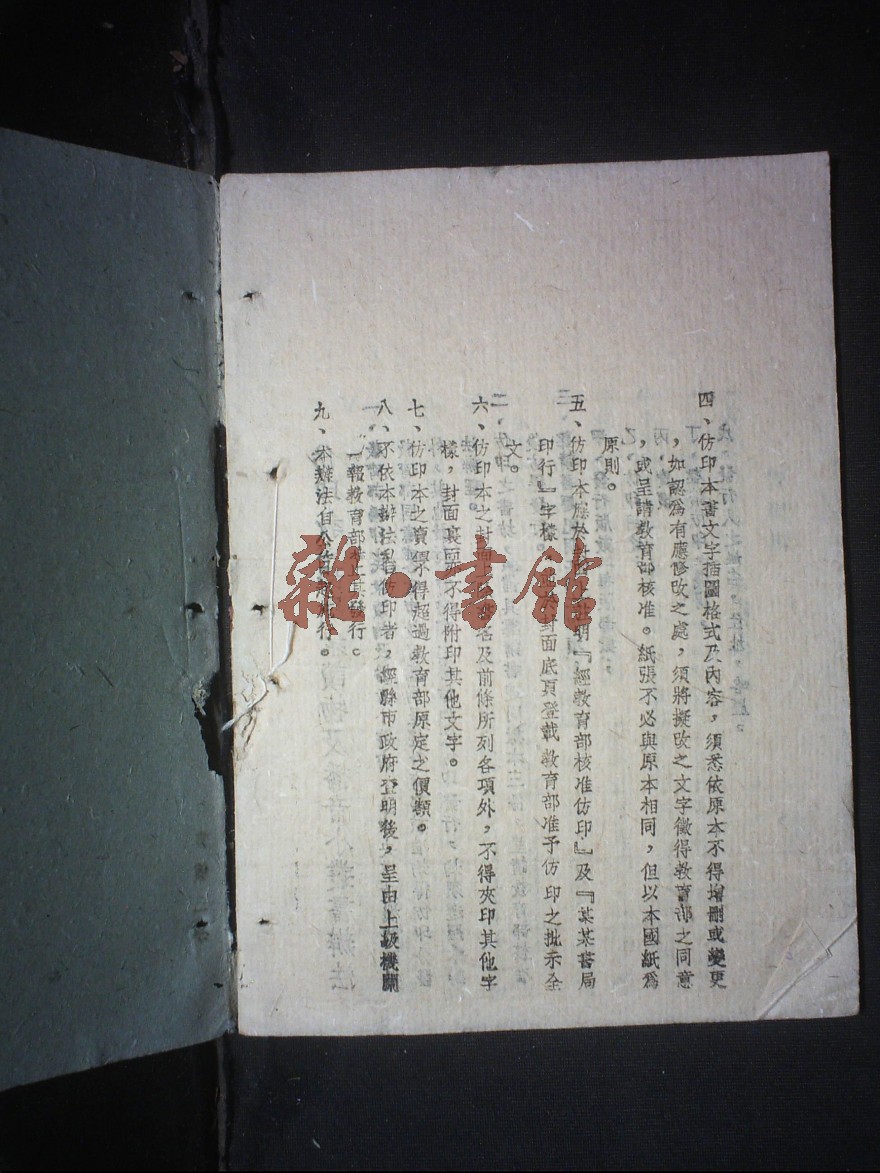 四、仿印本書文字插圖格式及內容，須悉依原本不得增刪或變更
，如認爲有應修改之處，須將擬改之文字徵得教育部之同意
，或呈請教育部核准。紙張不必與原本相同，但以本國紙爲
原則。
五、仿印本應於封面上註明『經教育部核准仿印』及『某某書局
印行』字樣，於封面底頁登載教育部准予仿印之批示全
文。
六、仿印本之封面上除書名及前條所列各項外，不得夾印其他字
樣，封面裏面亦不得附印其他文字。
七、仿印本之賣價不得超過教育部原定之價額。
八、不依本辦法私自仿印者，經縣市政府查明後，呈由上級機關
報教育部禁止其發行。
九、本辦法自公布日施行。
雜·書館